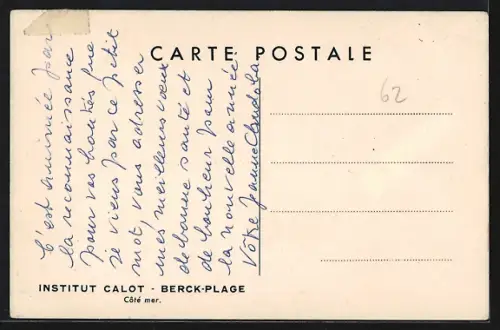 CARTE POSTALE
62
C'est animée par
la reconnaissance
pour vos bontés que
je viens par ce petit
mot, vous adresser
mes meilleurs vœux
de bonne santé et
de bonheur pour
la nouvelle année
Votre Jeanne
INSTITUT CALOT - BERCK-PLAGE
Côté mer.